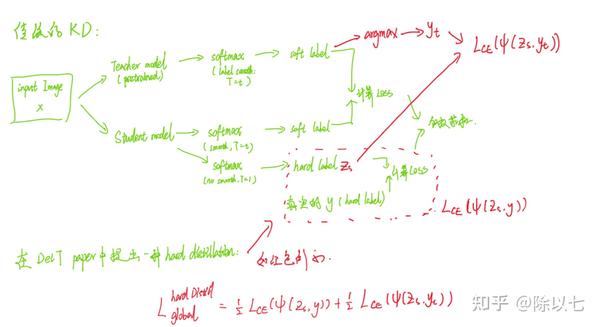 传统的 KD:
argmax → yt
L_CE(ψ(Zs, yt))
Teacher model
(pretrained)
softmax
(label smooth, T=t)
soft label
input Image
x
计算Loss
Student model
softmax
(smooth, T=t)
soft label
softmax
(no smooth, T=1)
hard label Zs
计算Loss
真实的 y (hard label)
L_CE(ψ(Zs, y))
在 DeiT paper中提出一种 hard distillation: 如红色部分.
L_global^hard Distill = 1/2 L_CE(ψ(Zs, y)) + 1/2 L_CE(ψ(Zs, yt))
知乎 @除以七